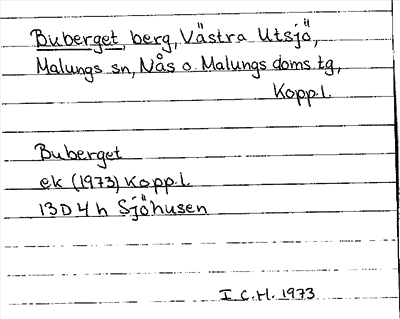 Buberget, berg, Västra Utsjö,
Malungs sn, Nås o. Malungs doms.tg,
Kopp.l.
Buberget
ek (1973) Kopp.l.
13D4h Sjöhusen
I C.H. 1973